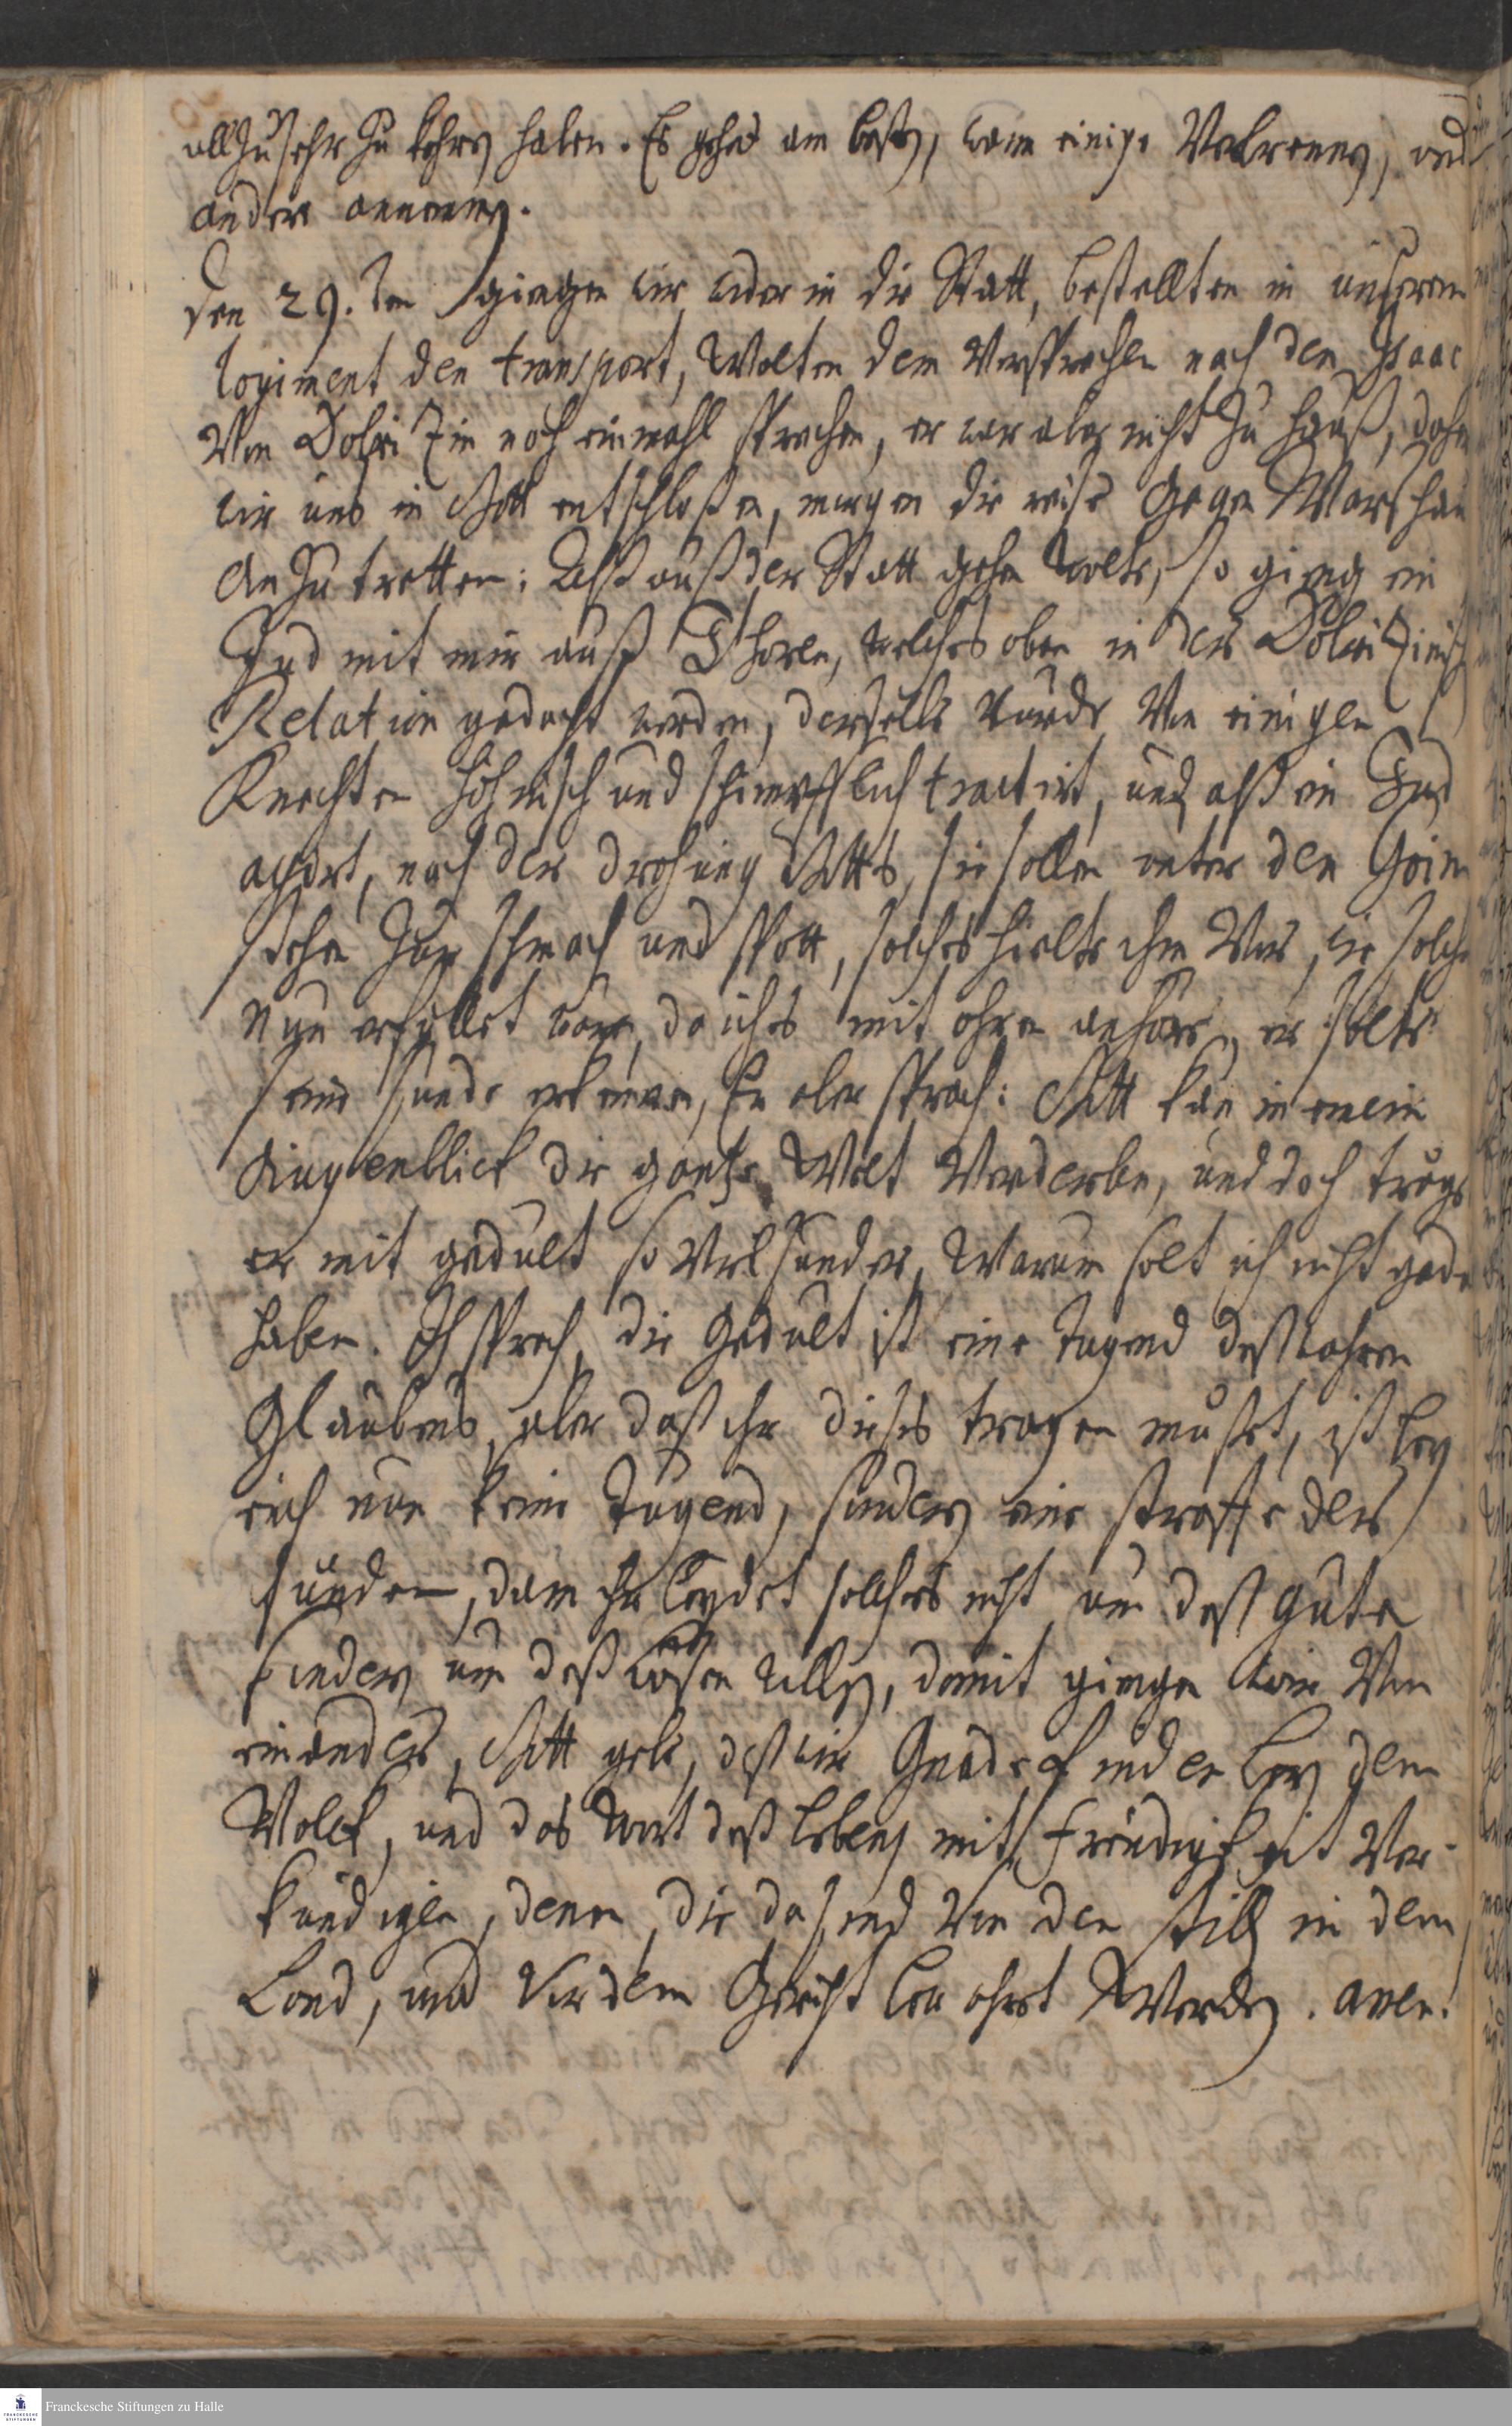 allzusehr zu kehrn haben. Es gehet am besten, wann einige Vakrenes, und
andere annemen.
Den 29. ten giengen wir wider in die Statt, bestellten in unserem
logiment den transport, Wolten dem Versprechen nach den Isaac
Von Dobrizin noch einmahl sprechen, er war aber nicht zu hauß, daher
wir uns in Gott entschloßen, morgen die reise Gegen Warschau
anzutretten: Alß auß der Statt gehen wolte, so gieng ein
Jud mit mir auß Thoren, welches oben in der Dobrizinisch
Relation gedacht worden, derselbe wurde Von einigen
Knechten höhnisch und schimpflich tractirt, und alß ein Jud
, nach der drohung Gotts, sie sollen unter den Goim
stehen zur schmach und spott, solches hielte ihm Vor, wie solche
nun erfüllet wär, da ichs mit ohren anhöre, er solte
seine sunde erkennen, Er aber sprach: Gott kan in einem
Augenblick die gantze Welt Verderben, und doch trage
er mit gedult so viel sunder, Warum solt ich nicht gedu
haben. Ich sprach, die Gedult ist eine Tugend deß wahren
Glaubens, aber daß ihr dieses tragen mußet, ist bey
euch nun keine Tugend, sondern eine straffe der
sünden, dann ihr leydet solches nicht um deß guten
sondern um deß bösen willen, damit giengen wir Von
einander, Gott gebe, daß wir Gnade finden bey dem
Volck, und das Wort deß lebens mit freudigkeit Ver-
kündigen, denen, die da sind Von den stillen in dem
Land, und Vor dem Gericht bewahret Werden. amen.
Franckesche Stiftungen zu Halle